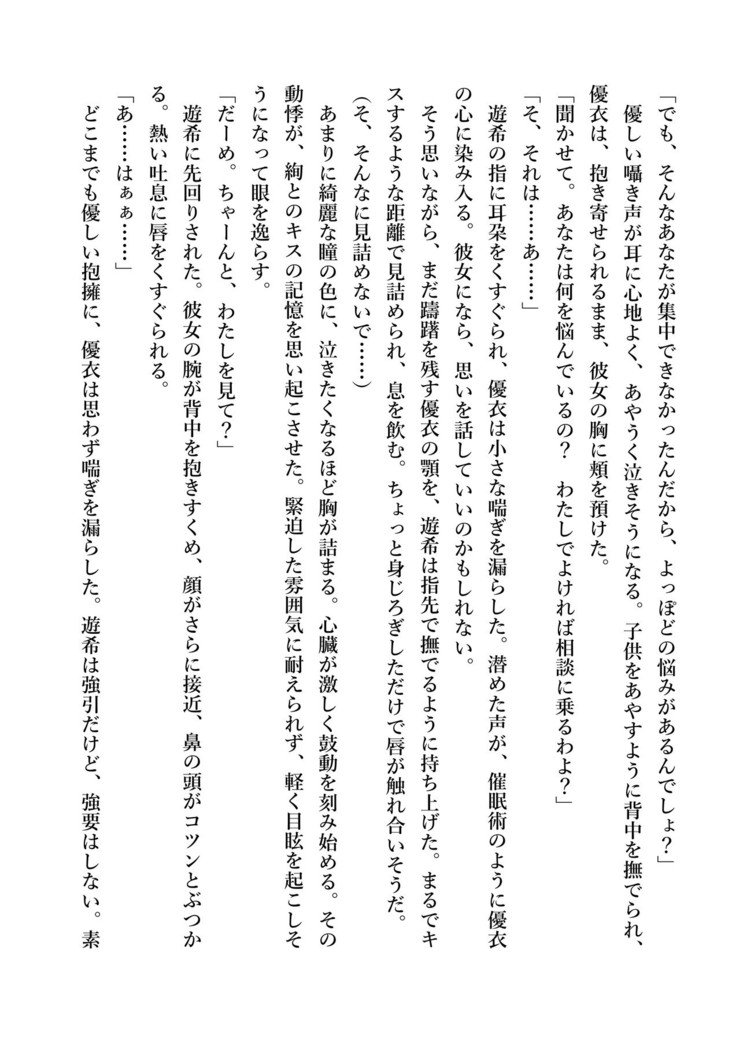 「でも、そんなあなたが集中できなかったんだから、よっぽどの悩みがあるんでしょ？」
優しい囁き声が耳に心地よく、あやうく泣きそうになる。子供をあやすように背中を撫でられ、
優衣は、抱き寄せられるまま、彼女の胸に頬を預けた。
「聞かせて。あなたは何を悩んでいるの？　わたしでよければ相談に乗るわよ？」
「そ、それは……あ……」
遊希の指に耳朶をくすぐられ、優衣は小さな喘ぎを漏らした。潜めた声が、催眠術のように優衣
の心に染み入る。彼女になら、思いを話していいのかもしれない。
そう思いながら、まだ躊躇を残す優衣の顎を、遊希は指先で撫でるように持ち上げた。まるでキ
スするような距離で見詰められ、息を飲む。ちょっと身じろぎしただけで唇が触れ合いそうだ。
（そ、そんなに見詰めないで……）
あまりに綺麗な瞳の色に、泣きたくなるほど胸が詰まる。心臓が激しく鼓動を刻み始める。その
動悸が、絢とのキスの記憶を思い起こさせた。緊迫した雰囲気に耐えられず、軽く目眩を起こしそ
うになって眼を逸らす。
「だーめ。ちゃーんと、わたしを見て？」
遊希に先回りされた。彼女の腕が背中を抱きすくめ、顔がさらに接近、鼻の頭がコツンとぶつか
る。熱い吐息に唇をくすぐられる。
「あ……はぁぁ……」
どこまでも優しい抱擁に、優衣は思わず喘ぎを漏らした。遊希は強引だけど、強要はしない。素